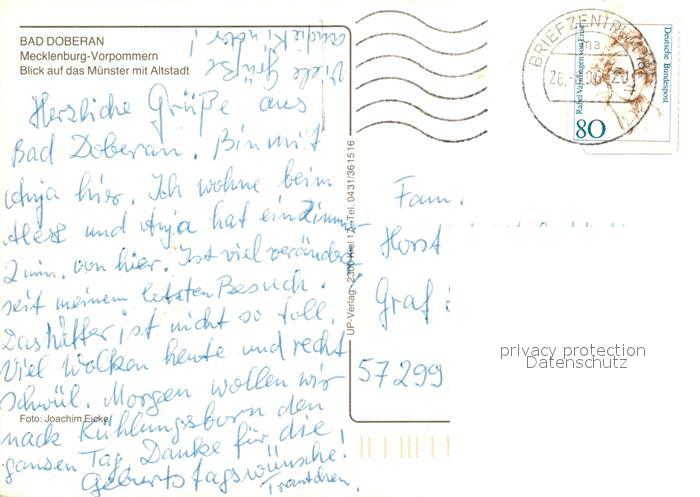 BAD DOBERAN
Mecklenburg-Vorpommern
Blick auf das Münster mit Altstadt
Viele Grüße
an die Kinder!
Herzliche Grüße aus
Bad Doberan. Bin mit
Anja hier. Ich wohne beim
und Anja hat ein Zimmer
2 min. von hier. Ist viel verändert
seit meinem letzten Besuch.
Das Wetter ist nicht so toll.
Viel Wolken heute und recht
schwül. Morgen wollen wir
nach Kühlungsborn den
ganzen Tag. Danke für die
Geburtstagswünsche!
Trautchen.
Foto: Joachim Eicke
UP-Verlag · 2300 Kiel 17 · Tel. 0431/361516
BRIEFZENTRUM
Rahel Varnhagen von Ense
80
Deutsche Bundespost
Fam.
Horst
Graf
57299
privacy protection
Datenschutz